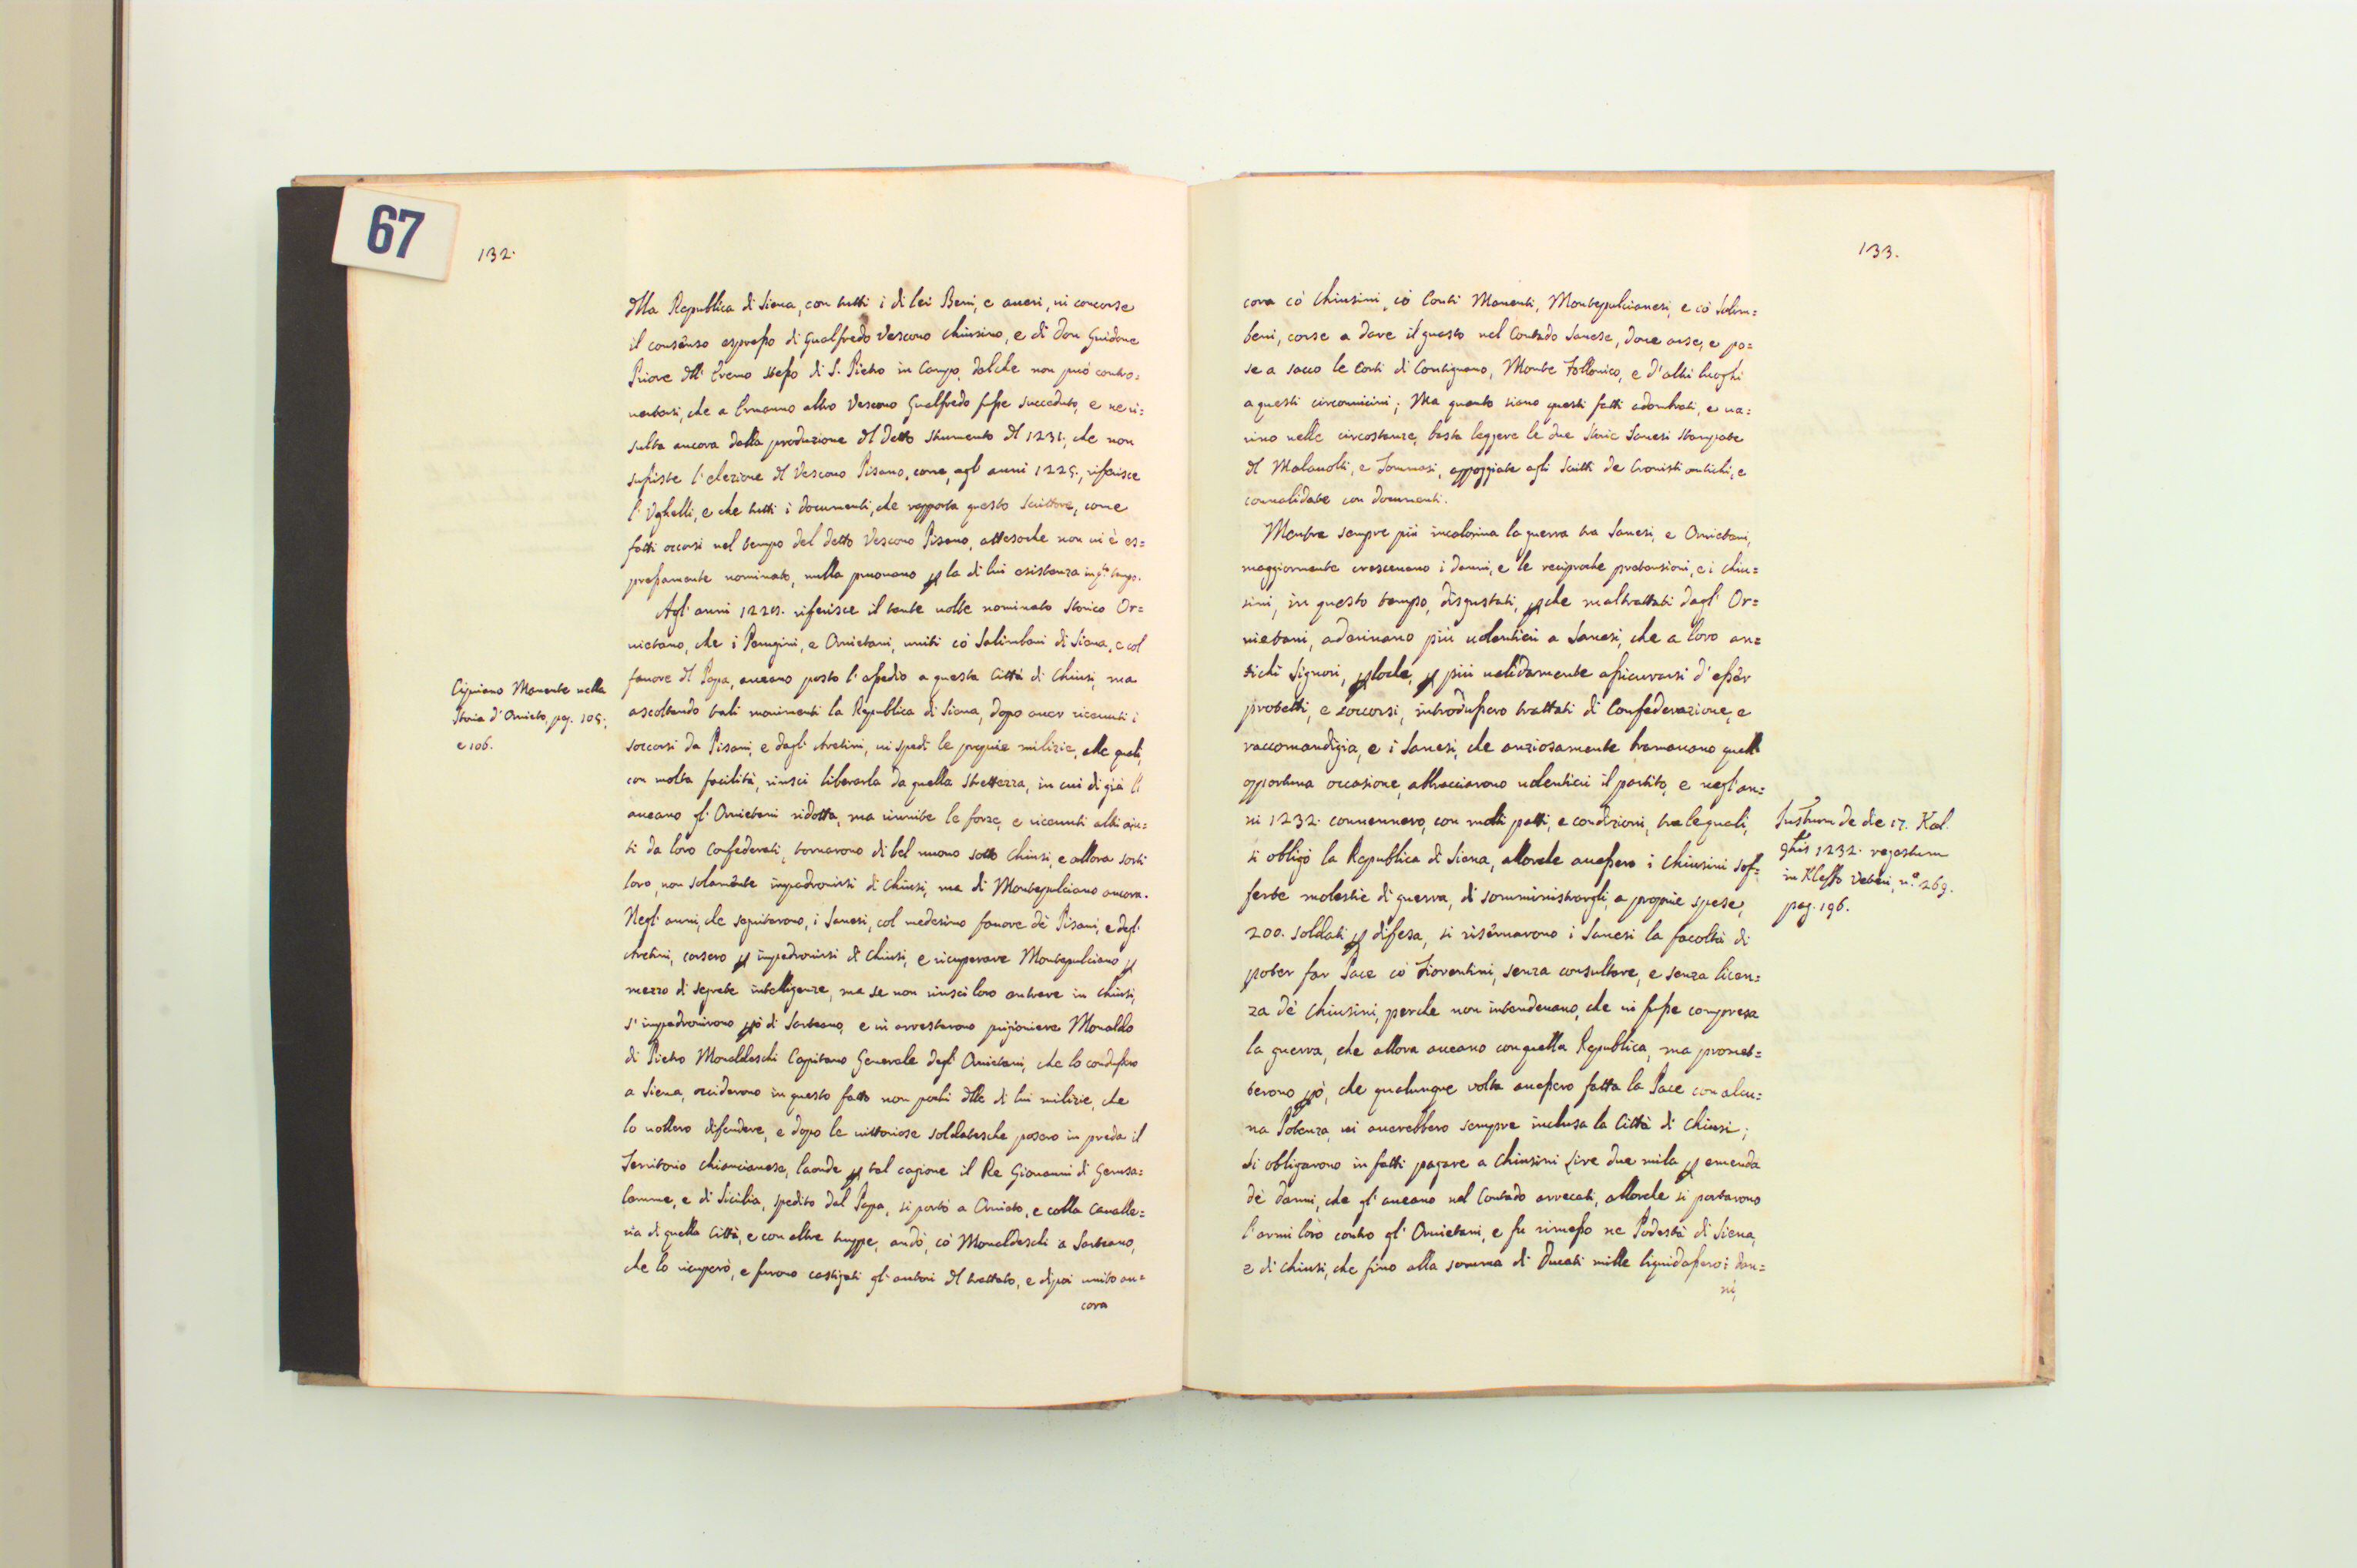 67
132.
dlla Republica di Siena, con tutti i di lei Beni, e averi, vi concorse
il consenso espresso di Gualfredo Vescovo Chiusino, e di Don Guidone
Priore dll' Eremo stesso di S. Pietro in Campo, dal che non può contro=
vertersi, che a Ermanno altro Vescovo Gualfredo fosse succeduto, e ne ri=
sulta ancora dalla produzione dl detto strumento dl 1231; che non
sussiste l'elezione dl Vescovo Pisano, come, agl' anni 1225., riferisce
l'Ughelli, e che tutti i documenti, che rapporta questo Scrittore, come
fatti occorsi nel tempo del detto Vescovo Pisano, attesoche non vi è es=
pressamente nominato, nulla pruovano p la di lui esistenza in q.to tempo.
Agl' anni 1229. riferisce il tante volte nominato Storico Or=
vietano, che i Perugini, e Orvietani, uniti có Salimbeni di Siena, e col
favore dl Papa, aveano posto l'assedio a questa Città di Chiusi, ma
ascoltando tali movimenti la Republica di Siena, dopo aver ricevuti i
soccorsi da Pisani, e dagl' Aretini, vi spedì le proprie milizie, alle quali,
con molta facilità, riuscì liberarla da quella strettezza, in cui di già l'
aveano gl' Orvietani ridotta, ma riunite le forze, e ricevuti altri aju=
ti da loro Confederati, tornarono di bel nuovo sotto Chiusi, e allora sortì
loro, non solamente impadronirsi di Chiusi, ma di Montepulciano ancora.
Negl' anni, che seguitarono, i Sanesi, col medesimo favore dè Pisani, e degl'
Aretini, corsero p impadronirsi di Chiusi, e ricuperare Montepulciano p
mezzo di segrete intelligenze, ma se non riuscì loro entrare in Chiusi,
s'impadronirono pò di Sarteano, e vi arrestarono prigioniere Monaldo
di Pietro Monaldeschi Capitano Generale degl' Orvietani, che lo condussero
a Siena, occiderono in questo fatto non pochi dlle di lui milizie, che
lo vollero difendere, e dopo le vittoriose soldatesche posero in preda il
Territorio Chiancianese, laonde p tal cagione il Re Giovanni di Gerusa=
lemme, e di Sicilia, spedito dal Papa, si portò a Orvieto, e colla Cavalle=
ria di quella Città, e con altre truppe, andò, có Monaldeschi a Sarteano,
che lo ricuperò, e furono castigati gl' autori dl trattato, e dipoi unito an=
cora
Cipriano Manente nella
Storia d'Orvieto, pag. 105;
e 106.
133.
cora có Chiusini, có Conti Manenti, Montepulcianesi, e có Salim=
beni, corse a dare il guasto nel Contado Sanese, dove arse, e po=
se a sacco le Corti di Contignano, Monte Follonico, e d'altri luoghi
a questi circonvicini; Ma quanto siano questi fatti adombrati, e va=
rino nelle circostanze, basta leggere le due Storie Sanesi stampate
dl Malavolti, e Tommasi, appoggiate agli Scritti de Cronisti antichi, e
convalidate con documenti.
Mentre sempre più incaloriva la guerra tra Sanesi, e Orvietani,
maggiormente crescevano i danni, e le reciproche pretensioni, e i Chiu=
sini, in questo tempo, disgustati, pche maltrattati dagl' Or=
vietani, aderivano più volentieri a Sanesi, che a loro an=
tichi Signori, ploche, p più validamente assicurarsi d'esser
protetti, e soccorsi, introdussero trattati di Confederazione, e
raccomandigia, e i Sanesi, che anziosamente bramavano quella
opportuna occasione, abbracciarono volentieri il partito, e negl' an=
ni 1232. convennero, con molti patti, e condizioni, tra le quali,
si obligò la Republica di Siena, allorche avessero i Chiusini sof=
ferte molestie di guerra, di somministrargli, a proprie spese,
200. soldati p difesa, si riservarono i Sanesi la facoltà di
poter far Pace có Fiorentini, senza consultare, e senza licen=
za dè Chiusini, perche non intendevano, che vi fosse compresa
la guerra, che allora aveano con quella Republica, ma promet=
terono pò, che qualunque volta avessero fatta la Pace con alcu=
na Potenza, vi averebbero sempre inclusa la Città di Chiusi;
Si obligarono in fatti pagare a Chiusini Lire due mila p emenda
dè danni, che gl' aveano nel Contado arrecati, allorche si portarono
l'armi loro contro gl' Orvietani, e fu rimesso ne Podestà di Siena,
e di Chiusi, che fino alla somma di Ducati mille liquidassero i dan=
ni,
Instrum de die 17. Kal.
1232. regestum
in Kleffo Veteri, n.º 269.
pag. 196.